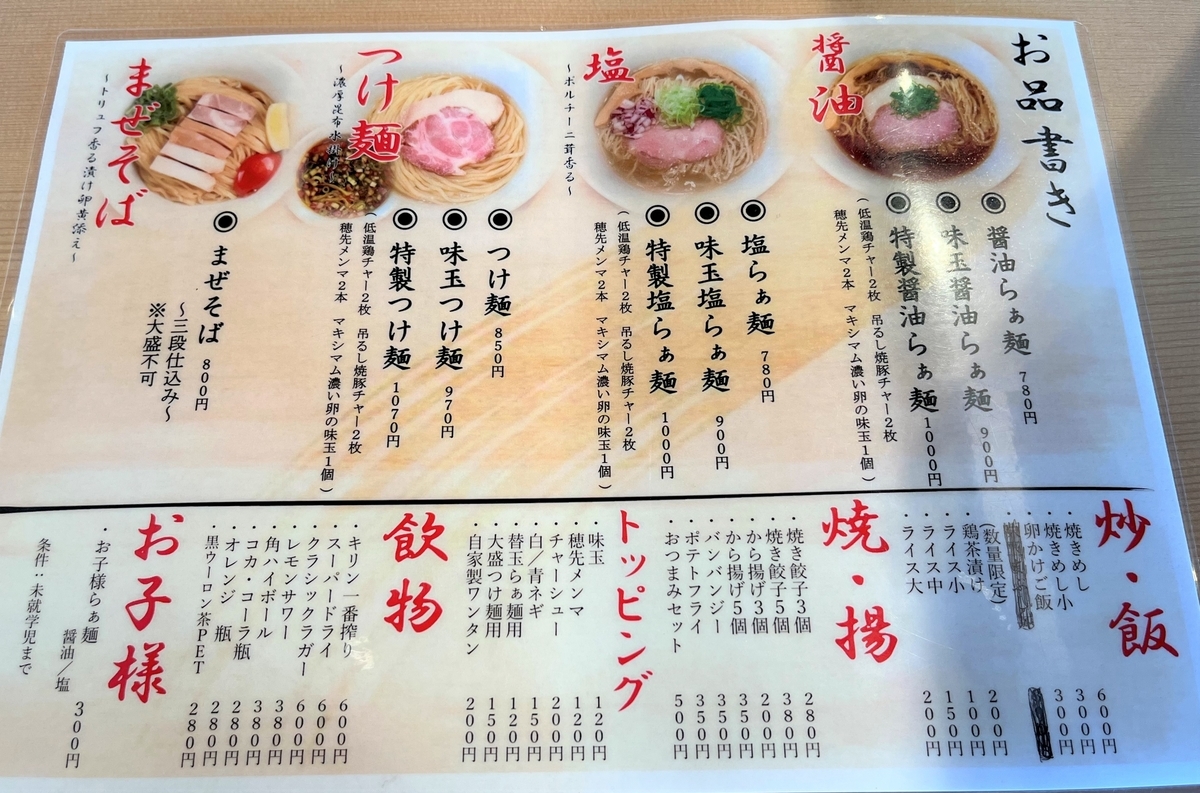 お品書き
醤油
◉ 醤油らぁ麺 780円
◉ 味玉醤油らぁ麺 900円
◉ 特製醤油らぁ麺 1000円
(低温鶏チャー2枚 吊るし焼豚チャー2枚
穂先メンマ2本 マキシマム濃い卵の味玉1個)
塩
～ポルチーニ茸香る～
◉ 塩らぁ麺 780円
◉ 味玉塩らぁ麺 900円
◉ 特製塩らぁ麺 1000円
(低温鶏チャー2枚 吊るし焼豚チャー2枚
穂先メンマ2本 マキシマム濃い卵の味玉1個)
つけ麺
～濃厚昆布水掛け
◉ つけ麺 850円
◉ 味玉つけ麺 970円
◉ 特製つけ麺 1070円
(低温鶏チャー2枚 吊るし焼豚チャー2枚
穂先メンマ2本 マキシマム濃い卵の味玉1個)
まぜそば
～トリュフ香る漬け卵黄添え～
◉ まぜそば 800円
～三段仕込み～
※大盛不可
炒・飯
・焼きめし 600円
・焼きめし小 300円
・卵かけご飯 300円
・(数量限定)
鶏茶漬け 200円
・ライス小 100円
・ライス中 150円
・ライス大 200円
焼・揚
・焼き餃子3個 280円
・焼き餃子5個 380円
・から揚げ3個 200円
・から揚げ5個 350円
・バンバンジー 350円
・ポテトフライ 350円
・おつまみセット 500円
トッピング
・味玉 120円
・穂先メンマ 120円
・チャーシュー 200円
・白/青ネギ 150円
・替玉らぁ麺用 120円
・大盛つけ麺用 150円
・自家製ワンタン 200円
飲物
・キリン一番搾り 600円
・スーパードライ 600円
・クラシックラガー 600円
・レモンサワー 380円
・角ハイボール 380円
・コカ・コーラ瓶 280円
・オレンジ 瓶 280円
・黒ウーロン茶PET 280円
お子様
・お子様らぁ麺
醤油/塩 300円
条件:未就学児まで